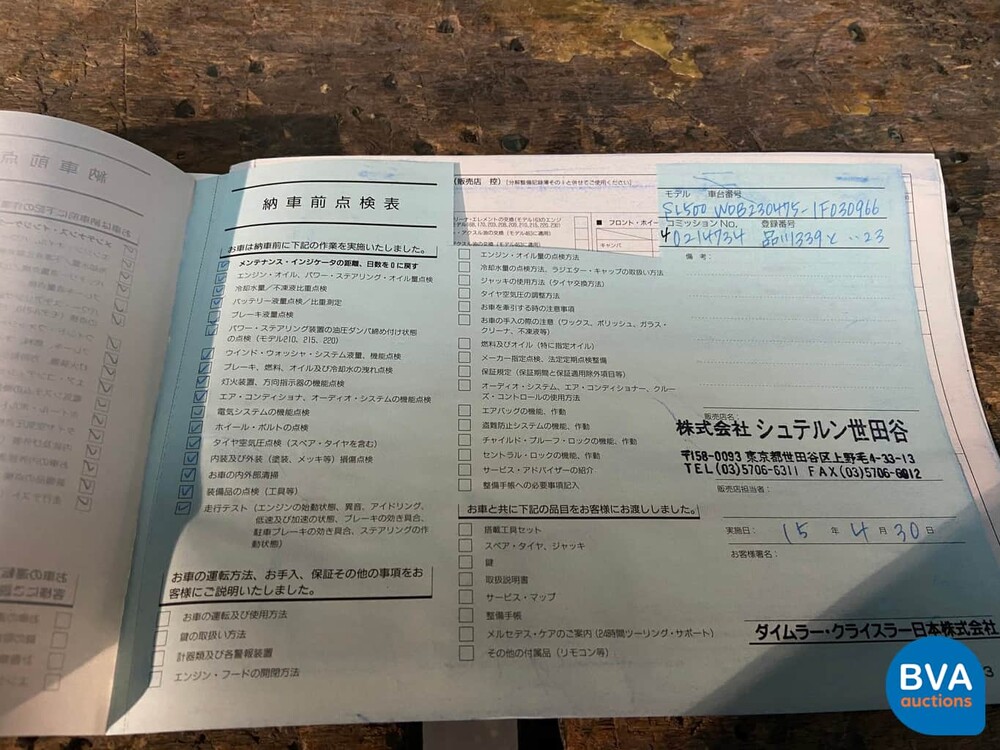 納車前点検表
お車は納車前に下記の作業を実施いたしました。
メンテナンス・インジケータの距離、日数を0に戻す
エンジン・オイル、パワー・ステアリング・オイル量点検
冷却水量/不凍液比重点検
バッテリー液量点検/比重測定
ブレーキ液量点検
パワー・ステアリング装置の油圧ダンパ締め付け状態
の点検（モデル210、215、220）
ウインド・ウォッシャ・システム液量、機能点検
ブレーキ、燃料、オイル及び冷却水の洩れ点検
灯火装置、方向指示器の機能点検
エア・コンディショナ、オーディオ・システムの機能点検
電気システムの機能点検
ホイール・ボルトの点検
タイヤ空気圧点検（スペア・タイヤを含む）
内装及び外装（塗装、メッキ等）損傷点検
お車の内外部清掃
装備品の点検（工具等）
走行テスト（エンジンの始動状態、異音、アイドリング、
低速及び加速の状態、ブレーキの効き具合、
駐車ブレーキの効き具合、ステアリングの作
動状態）
お車の運転方法、お手入、保証その他の事項をお
客様にご説明いたしました。
お車の運転及び使用方法
鍵の取扱い方法
計器類及び各警報装置
エンジン・フードの開閉方法
（販売店 控）［分解整備記録簿その1と併せてご使用ください］
■ フロント・ホイー
キャンバ
エンジン・オイル量の点検方法
冷却水量の点検方法、ラジエター・キャップの取扱い方法
ジャッキの使用方法（タイヤ交換方法）
タイヤ空気圧の調整方法
お車を牽引する時の注意事項
お車の手入の際の注意（ワックス、ポリッシュ、ガラス・
クリーナ、不凍液等）
燃料及びオイル（特に指定オイル）
メーカー指定点検、法定定期点検整備
保証規定（保証期間と保証適用除外項目等）
オーディオ・システム、エア・コンディショナー、クルー
ズ・コントロールの使用方法
エアバッグの機能、作動
盗難防止システムの機能、作動
チャイルド・プルーフ・ロックの機能、作動
セントラル・ロックの機能、作動
サービス・アドバイザーの紹介
整備手帳への必要事項記入
お車と共に下記の品目をお客様にお渡ししました。
搭載工具セット
スペア・タイヤ、ジャッキ
鍵
取扱説明書
サービス・マップ
整備手帳
メルセデス・ケアのご案内（24時間ツーリング・サポート）
その他の付属品（リモコン等）
モデル 車台番号
SL500 WDB230475-1F030966
コミッションNo. 登録番号
40214734 品川339と ・・23
備考：
販売店名：
株式会社 シュテルン世田谷
〒158-0093 東京都世田谷区上野毛4-33-13
TEL (03)5706-6311 FAX (03)5706-6012
販売店担当者：
実施日： 15 年 4 月 30 日
お客様署名：
ダイムラー・クライスラー日本株式会社
3
BVA
auctions